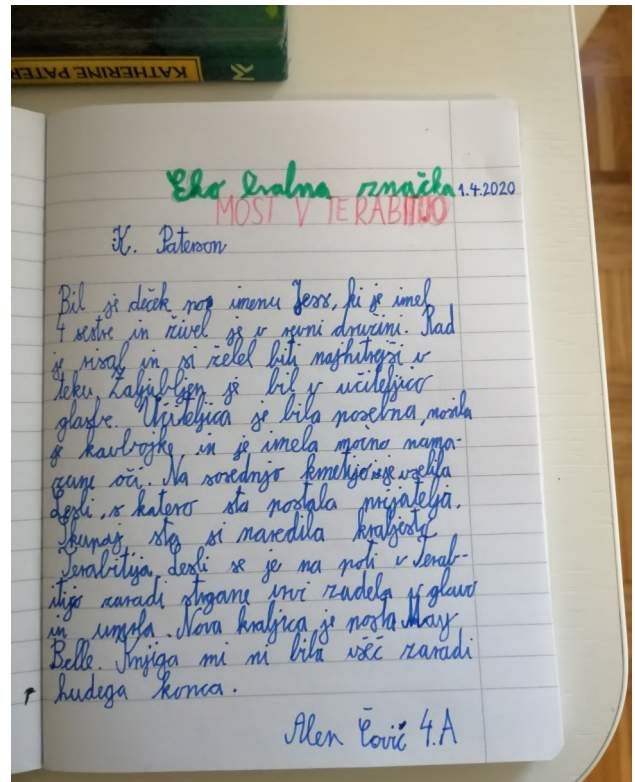 KATHERINE PATER
Eko bralna značka 1.4.2020
MOST V TERABITIJO
K. Paterson
Bil je deček po imenu Jess, ki je imel
4 sestre in živel je v revni družini. Rad
je risal in si želel biti najhitrejši v
teku. Zaljubljen je bil v učiteljico
glasbe. Učiteljica je bila posebna, nosila
je kavbojke in je imela močno nama-
zane oči. Na sosednjo kmetijo se je vselila
Lesli, s katero sta postala prijatelja.
Skupaj sta si naredila kraljestvo
Terabitija. Lesli se je na poti v Terab-
itijo zaradi strgane vrvi zadela v glavo
in umrla. Nova kraljica je posta May
Belle. Knjiga mi ni bila všeč zaradi
hudega konca.
Alen Čović 4.A